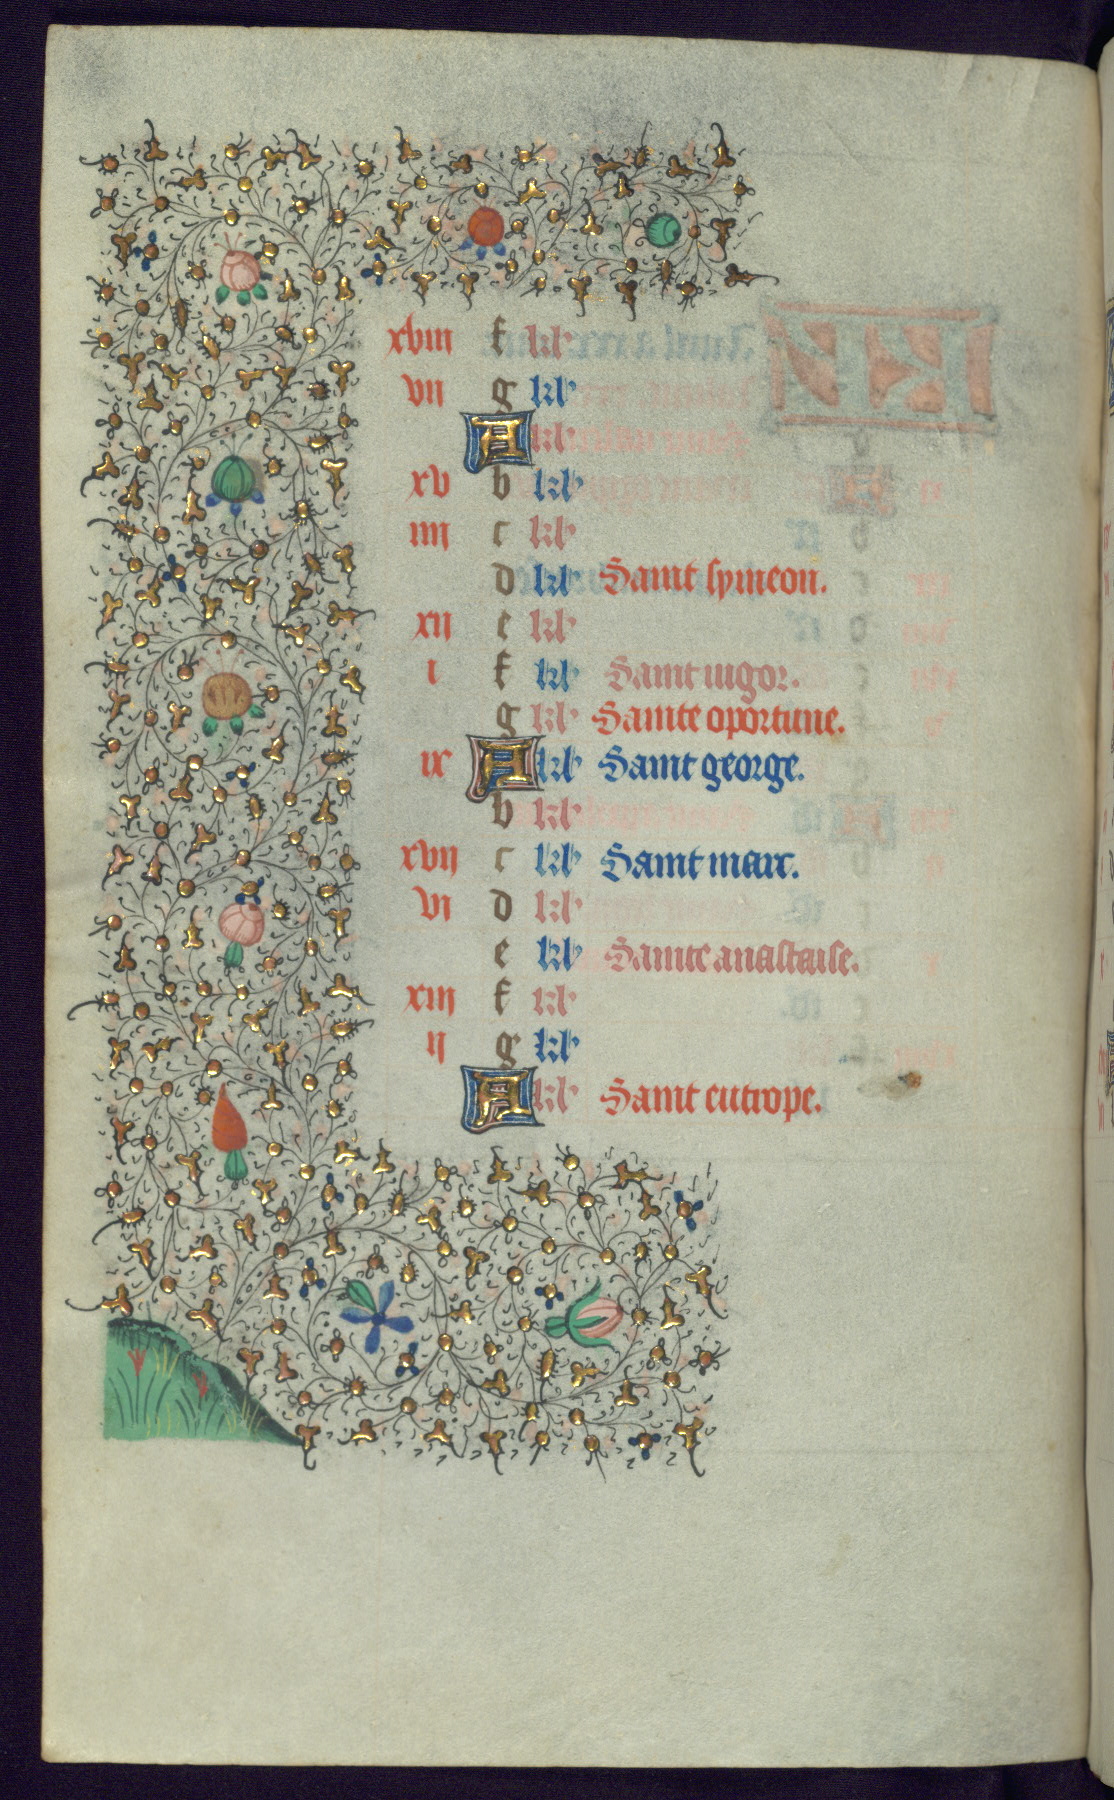 xviii f kl'
vii g kl'
A kl'
xv b kl'
iiii c kl'
d kl' Saint symeon.
xii e kl'
i f kl' Saint uigor.
g kl' Sainte oportune.
ix A kl' Saint george.
b kl'
xvii c kl' Saint marc.
vi d kl'
e kl' Sainte anastaise.
xiiii f kl'
ii g kl'
A kl' Saint eutrope.